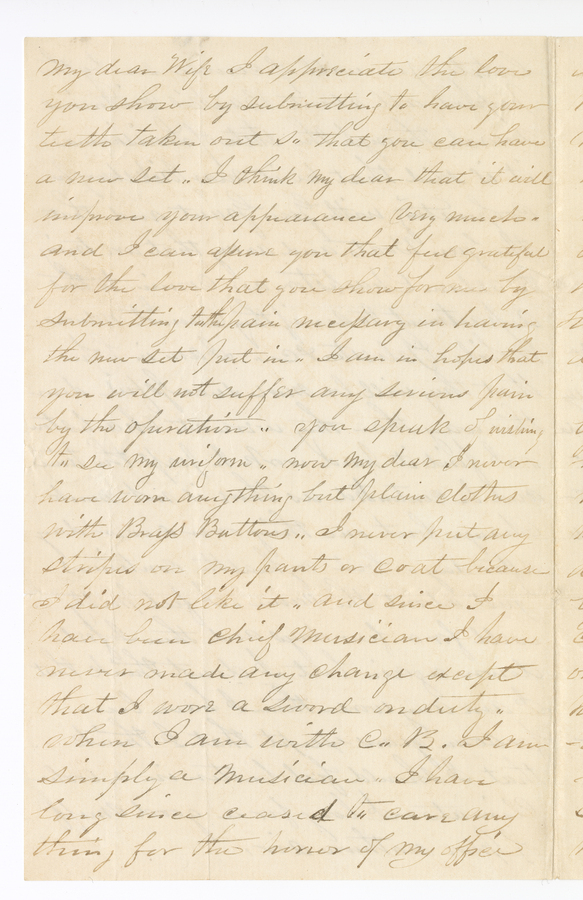 My dear Wife I appreciate the love
you show by submitting to have your
teeth taken out so that you can have
a new set. I think my dear that it will
improve your appearance very much.
and I can assure you that feel grateful
for the love that you show for me by
submitting to the pain necessary in having
the new set put in. I am in hopes that
you will not suffer any serious pain
by the operation. you speak of wishing
to see my uniform. now my dear I never
have worn anything but plain clothes
with Brass Buttons. I never put any
stripes on my pants or coat because
I did not like it. and since I
have been chief musician I have
never made any change except
that I wore a sword on duty.
when I am with Co. B. I am
simply a musician. I have
long since ceased to care any
thing for the honor of my office